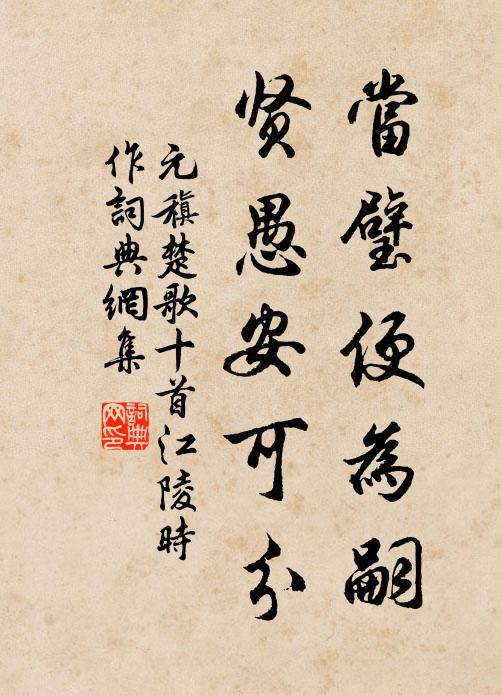 當璧便為嗣
贤愚安可分
元稹楚歌十首江陵時
作詞典網集
詞典网印